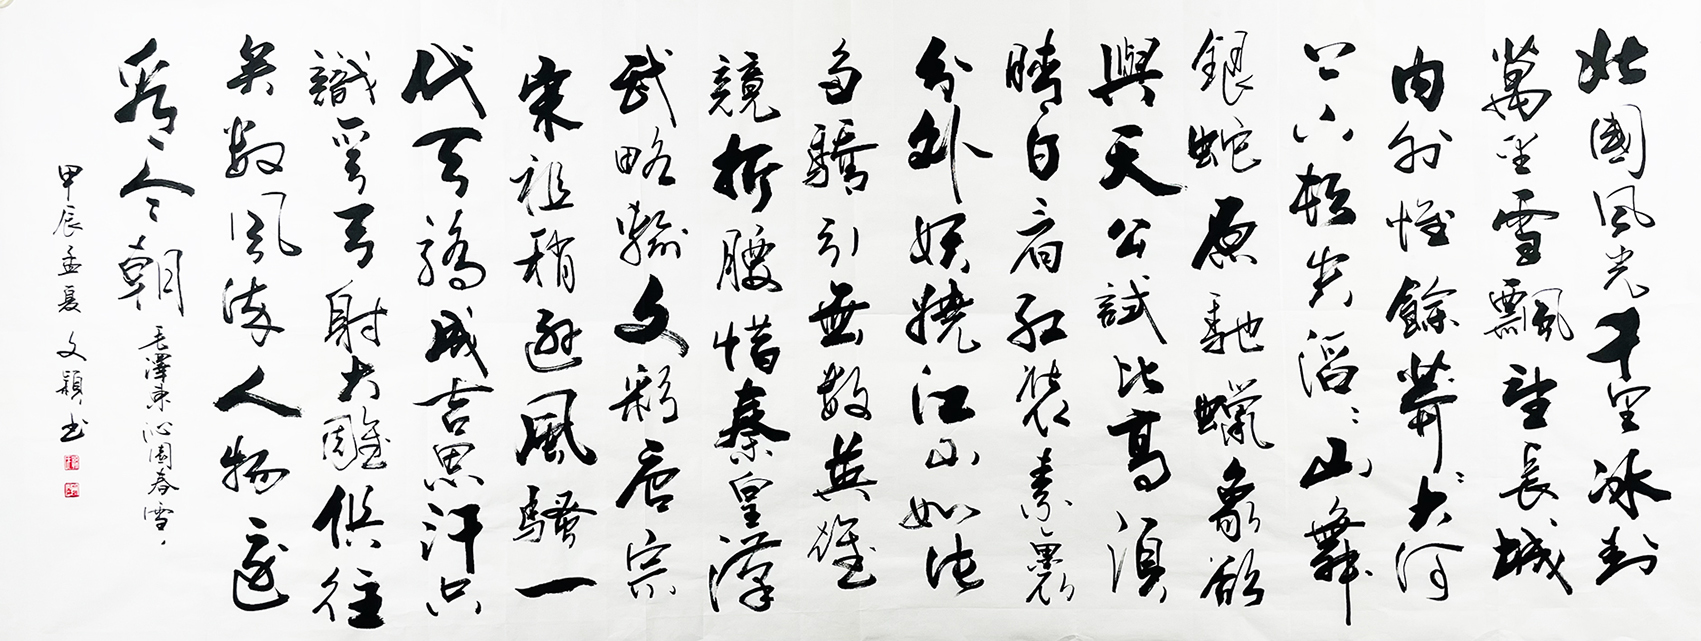 北國風光千里冰封
萬里雪飄望長城
內外惟餘莽々大河
上下頓失滔々山舞
銀蛇原馳蠟象欲
與天公試比高須
晴日看紅裝素裹
分外妖嬈江山如此
多驕引無數英雄
競折腰惜秦皇漢
武略輸文彩唐宗
宋祖稍遜風騷一
代天驕成吉思汗只
識彎弓射大雕俱往
矣數風流人物還
看今朝
毛澤東沁園春雪
甲辰孟夏 文穎书